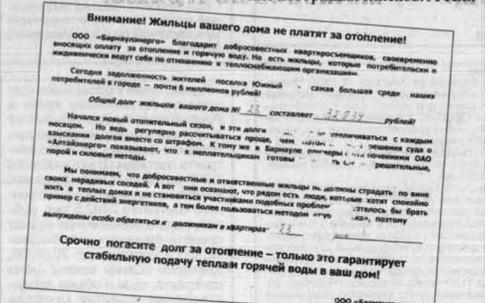 Внимание! Жильцы вашего дома не платят за отопление!
ООО «Барнаулэнерго» благодарит добросовестных квартиросъемщиков, своевременно
вносящих оплату за отопление и горячую воду. Но есть жильцы, которые потребительски и
иждивенчески ведут себя по отношению к теплоснабжающим организациям.
Сегодня задолженность жителей поселка Южный самая большая среди наших
потребителей в городе – почти 6 миллионов рублей!
Общий долг жильцов вашего дома № 33 составляет рублей!
Начался новый отопительный сезон, и эти долги увеличиваться с каждым
месяцем. Но ведь регулярно рассчитываться проще, чем решения суда о
взыскании долгов вместе со штрафом. К тому же в Барнауле ОАО
«Алтайэнерго» показывают, что к неплательщикам готовы решительные,
порой и силовые методы.
Мы понимаем, что добросовестные и ответственные жильцы не должны страдать по вине
своих нерадивых соседей. А вот они осознают, что рядом есть люди, которые хотят спокойно
жить в теплых домах и не становиться участниками подобных проблем бы брать
пример с действий энергетиков, а тем более пользоваться методом поэтому
вынуждены особо обратиться к должникам в квартирах 23
Срочно погасите долг за отопление – только это гарантирует
стабильную подачу тепла и горячей воды в ваш дом!
ООО